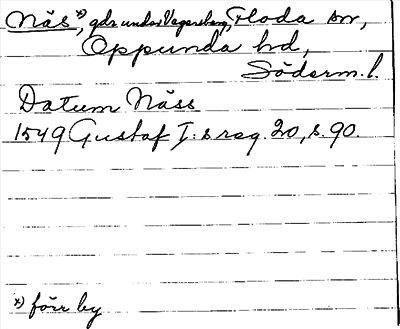 Näs*), gds under Vagersberg, Floda sn,
Oppunda hd,
Söderm. l.
Datum Näss
1549 Gustaf I:s reg. 20, s. 90.
*) förr by